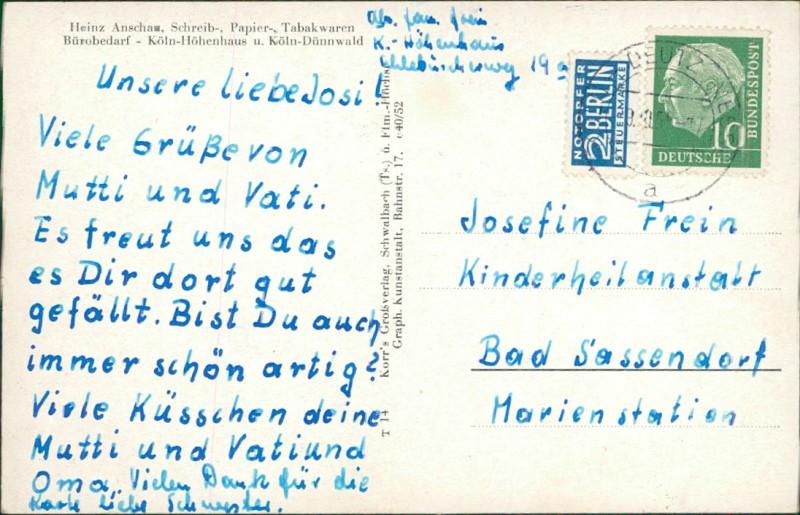 Heinz Anschau, Schreib-, Papier-, Tabakwaren
Bürobedarf - Köln-Höhenhaus u. Köln-Dünnwald
Abs. fam. Frein
K.- Höhenhaus
19a
Unsere liebe Josi!
Viele Grüße von
Mutti und Vati.
Es freut uns das
es Dir dort gut
gefällt. Bist Du auch
immer schön artig?
Viele Küsschen deine
Mutti und Vati und
Oma. Vielen Dank für die
Karte liebe Schwester.
T 14 Korr's Großverlag, Schwalbach (Ts.) ü. Ffm.-Höchst
Graph. Kunstanstalt, Bahnstr. 17. c40/52
NOTOPFER
2 BERLIN
STEUERMARKE
DEUTZ
a
10
DEUTSCHE
BUNDESPOST
Josefine Frein
Kinderheilanstalt
Bad Sassendorf
Marienstation